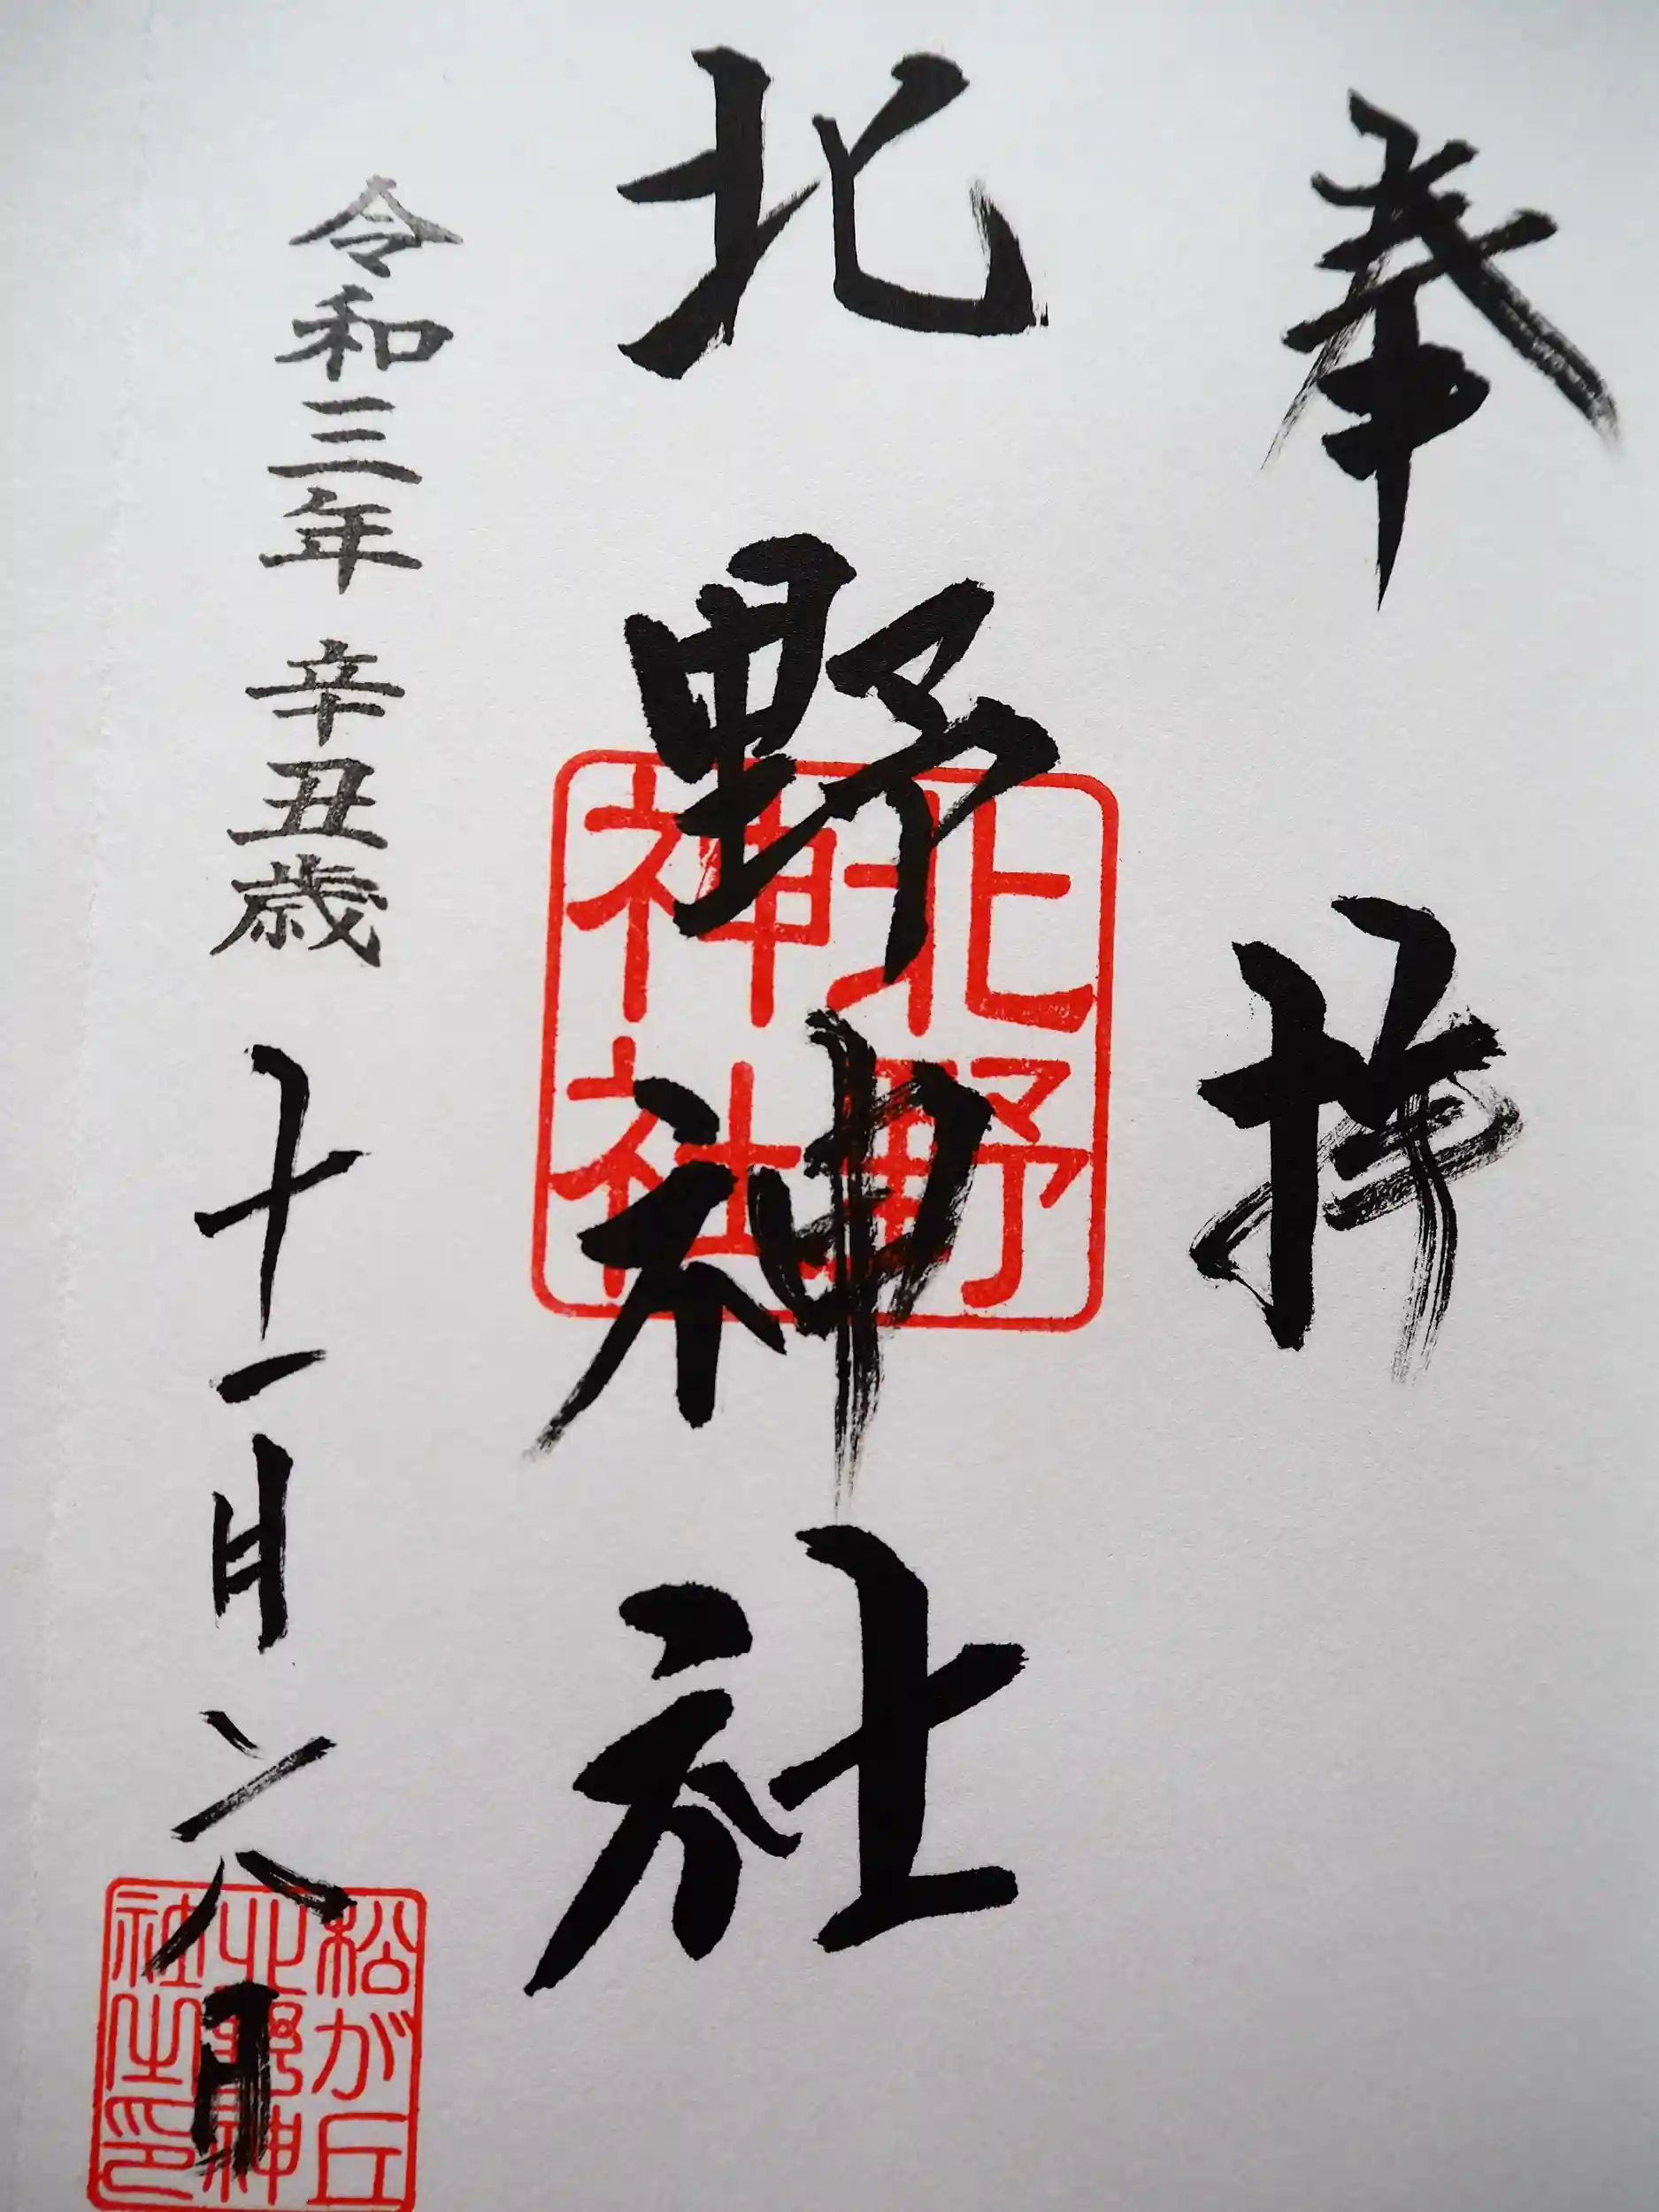 奉拝
北野神社
北野
神社
令和三年 辛丑歳 十一月六日
松が丘
北野神
社之印